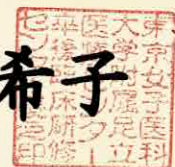 希子
東京女子医科
大学附属足立
医療センター
卒後臨床研修